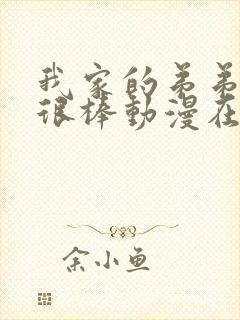 我家的弟弟
很棒動漫在
余小鱼